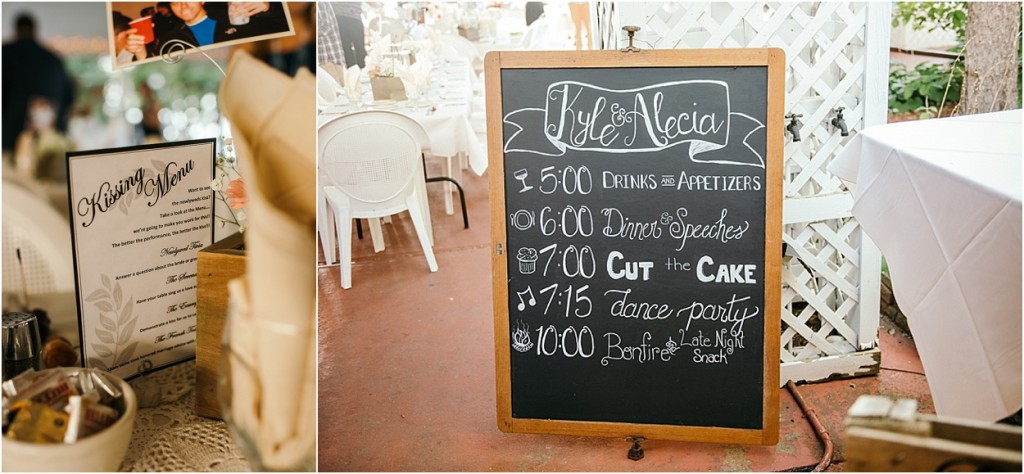 Kissing Menu
Want to see
the newlyweds kiss?
Take a look at the Menu...
we're going to make you work for this!!
The better the performance, the better the
Newlywed Trivia
Answer a question about the bride or
The
Have your table sing us a love
The
Demonstrate a kiss for us to
The
Kyle & Alecia
5:00 DRINKS AND APPETIZERS
6:00 Dinner & Speeches
7:00 CUT the CAKE
7:15 dance party
10:00 Bonfire & Late Night
Snack